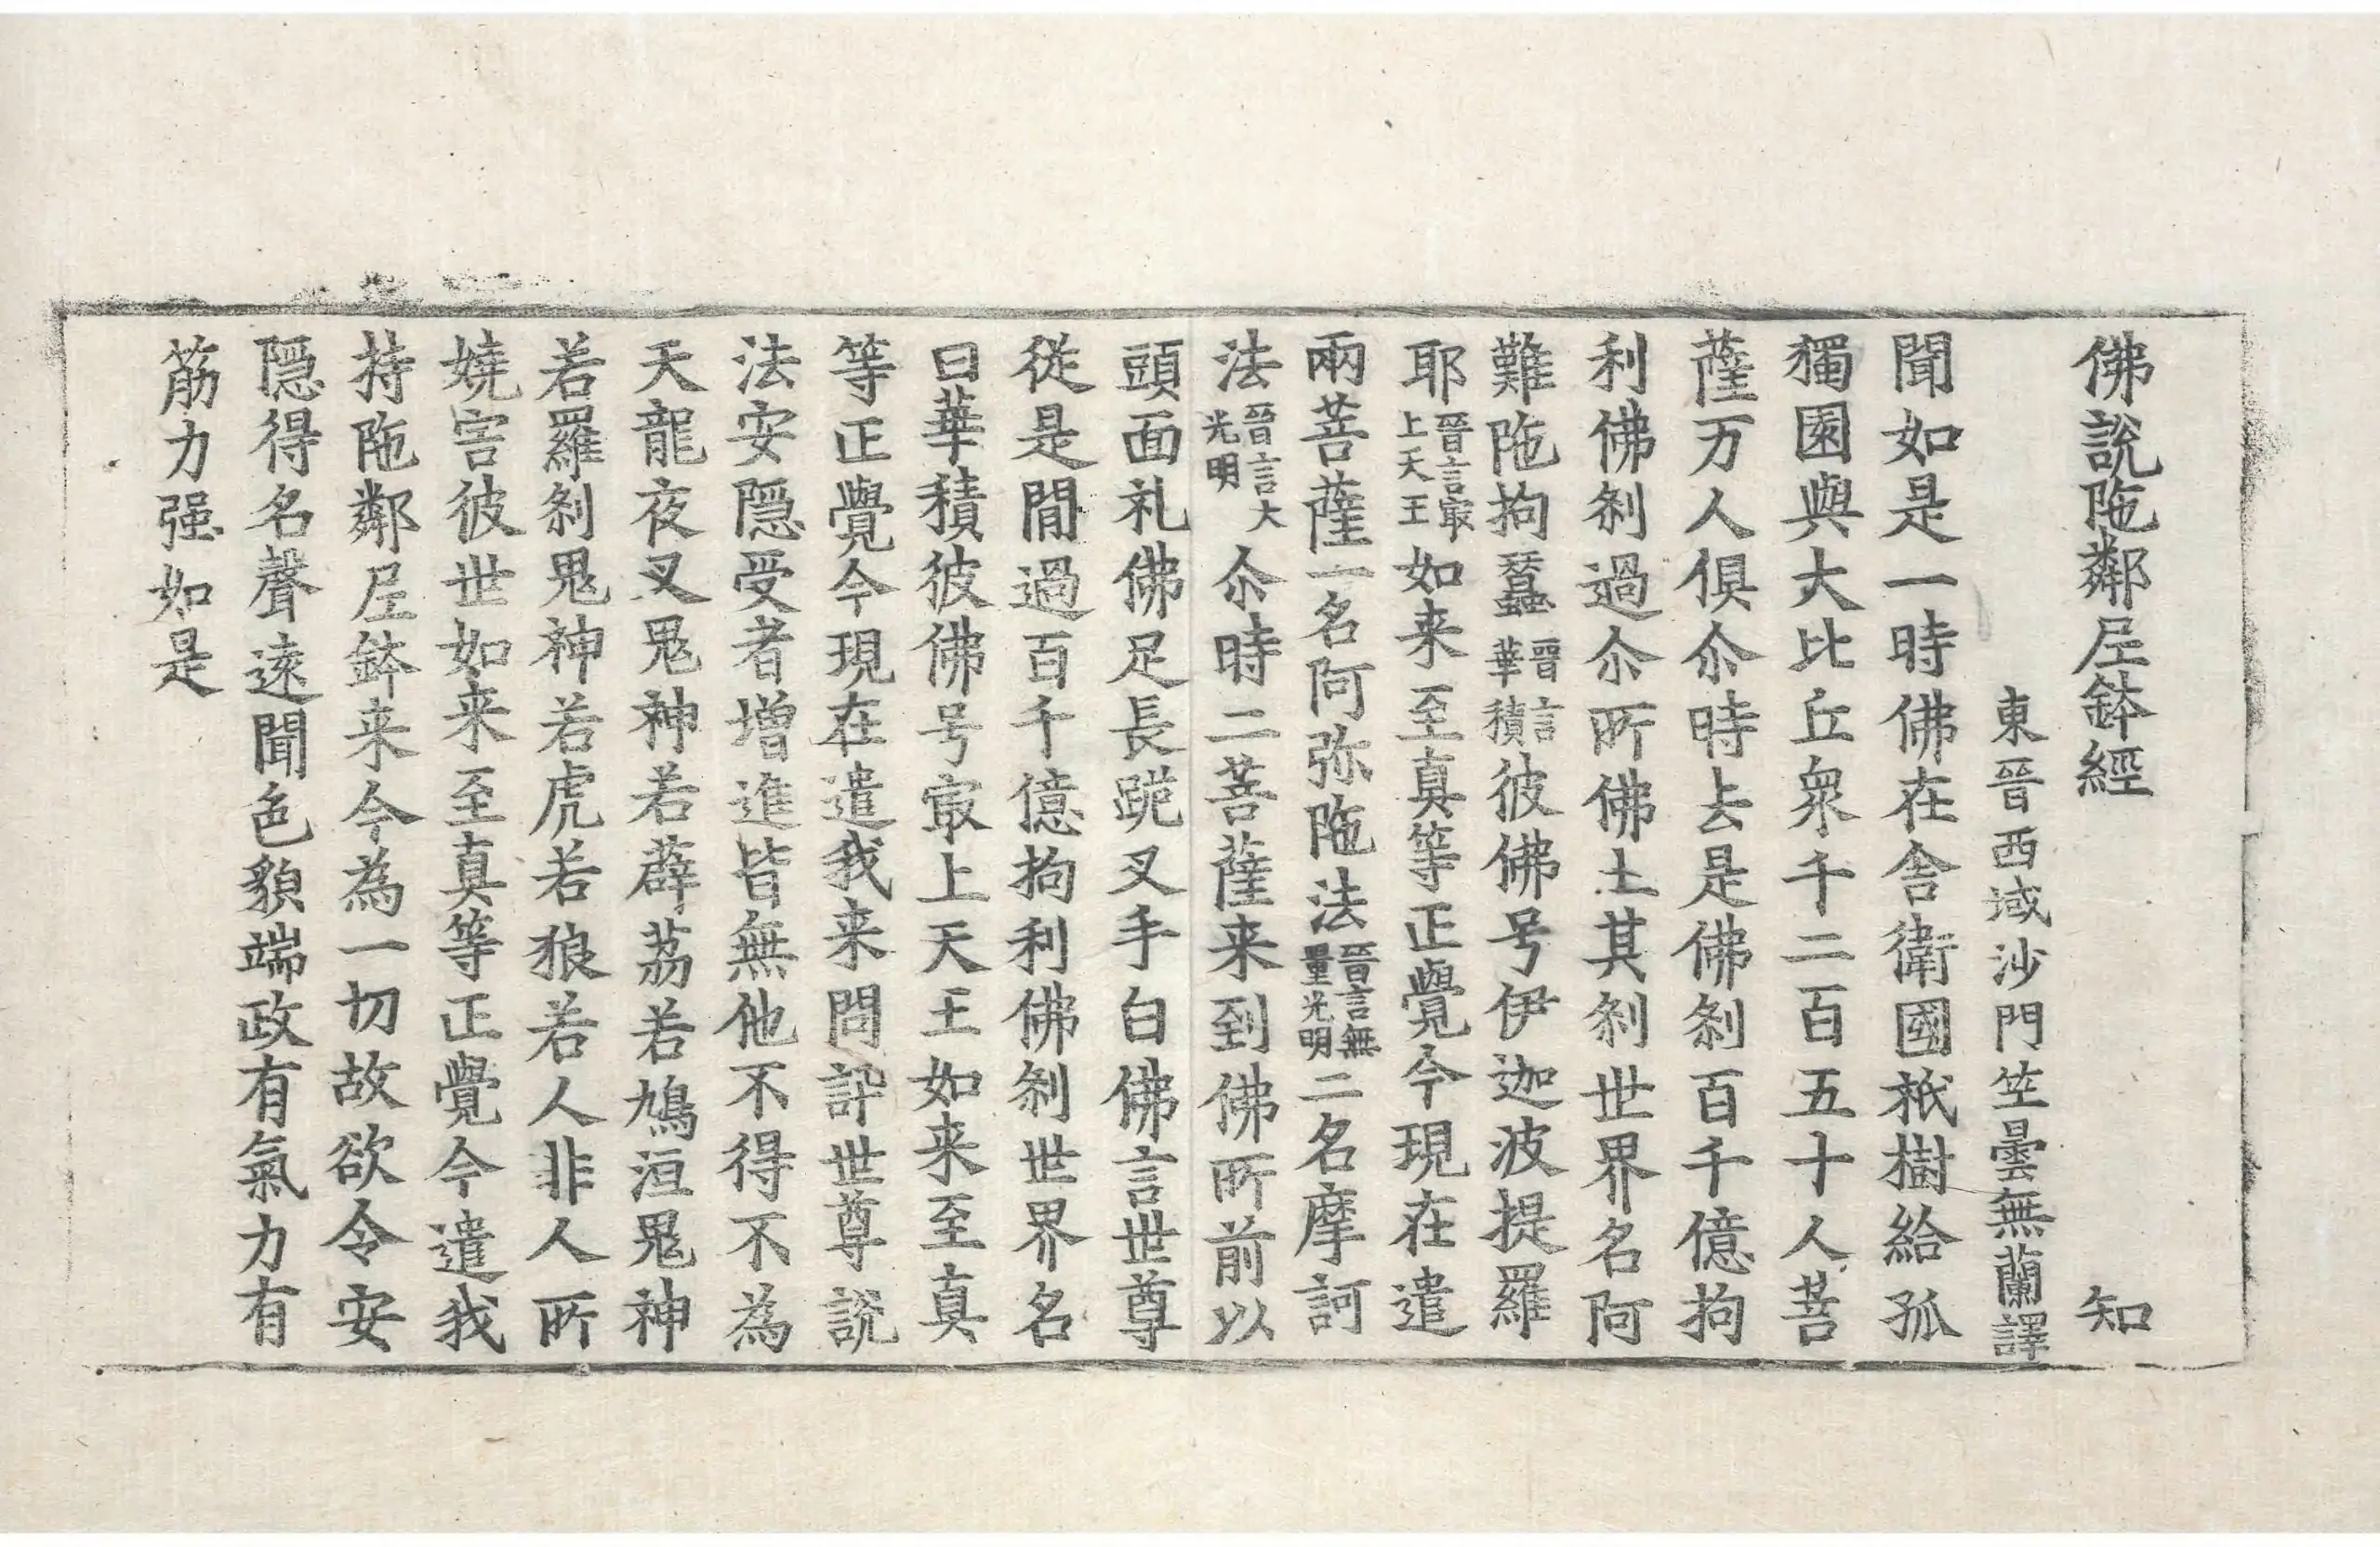 佛說陁鄰𡰱鉢經 知
東晉西域沙門竺曇無蘭譯
聞如是一時佛在舍衛國祇樹給孤
獨園與大比丘衆千二百五十人菩
薩万人俱尒時去是佛剎百千億拘
利佛剎過尒所佛土其剎世界名阿
難陁拘蠶晉言華積彼佛号伊迦波提羅
耶晉言㝡上天王如来至真等正覺今現在遣
兩菩薩一名阿弥陁法晉言無量光明二名摩訶
法晉言大光明尒時二菩薩来到佛所前以
頭面礼佛足長跪叉手白佛言世尊
從是閒過百千億拘利佛剎世界名
曰華積彼佛号㝡上天王如来至真
等正覺今現在遣我来問訊世尊說
法安隠受者增進皆無他不得不為
天龍夜叉鬼神若薜荔若鳩洹鬼神
若羅剎鬼神若虎若狼若人非人所
嬈害彼世如来至真等正覺今遣我
持陁鄰𡰱鉢来今為一切故欲令安
隠得名聲遠聞色貌端政有氣力有
筋力强如是